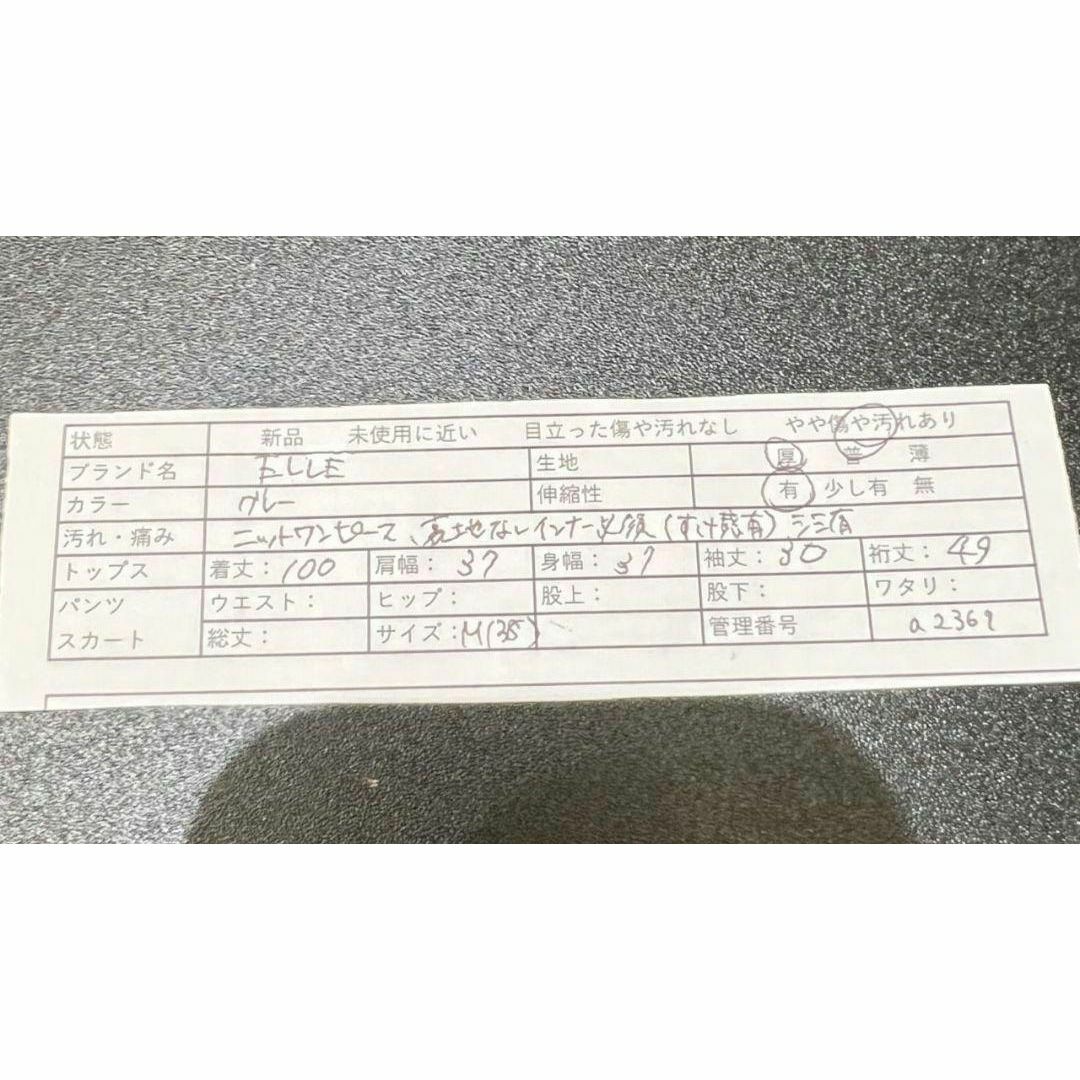 状態 新品 未使用に近い 目立った傷や汚れなし やや傷や汚れあり
ブランド名 ELLE 生地 厚 普 薄
カラー グレー 伸縮性 有 少し有 無
汚れ・痛み ニットワンピース、裏地なしインナー必須(すけ感有)シミ有
トップス 着丈:100 肩幅:37 身幅:37 袖丈:30 裄丈:49
パンツ ウエスト: ヒップ: 股上: 股下: ワタリ:
スカート 総丈: サイズ:M(38) 管理番号 a2369